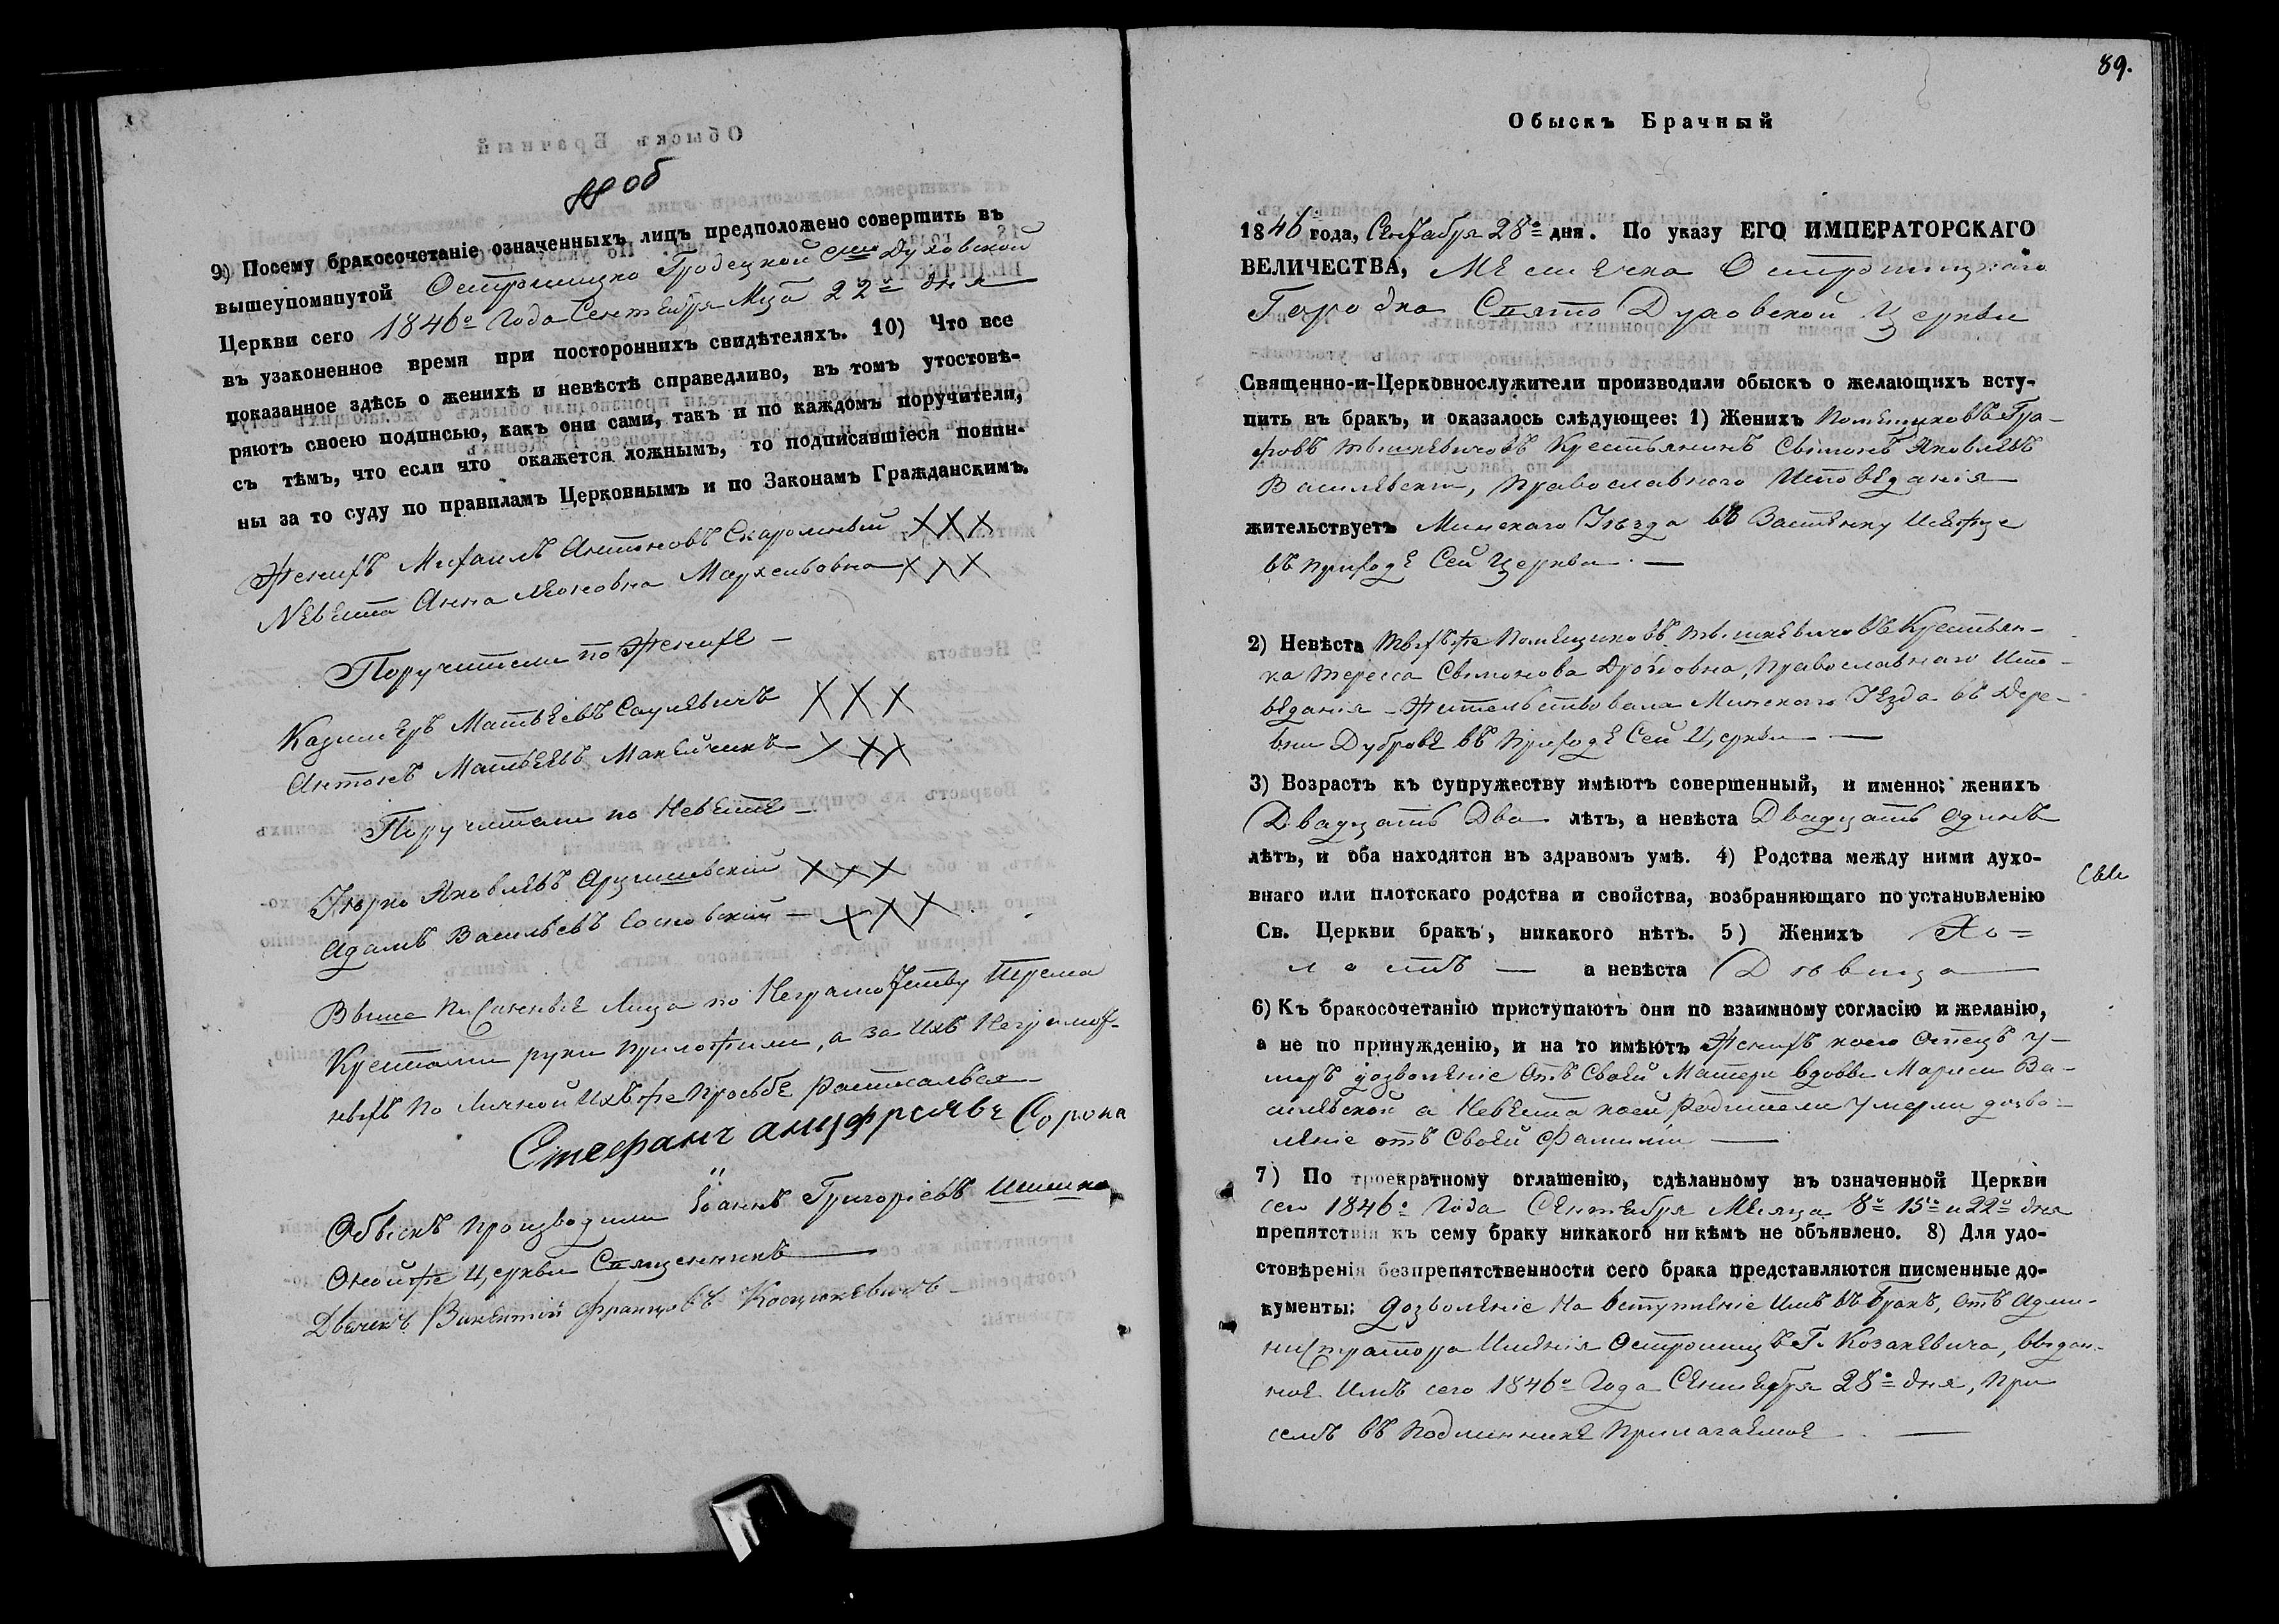 88 об
9) Посему бракосочетаніе означенныхъ лицъ предположено совершить въ
вышеупомянутой Остромицко Гродецкой Свято Духовской
Церкви сего 1846го Года Сентября Мца 22го дня
въ узаконенное время при постороннихъ свидѣтеляхъ. 10) Что все
показанное здѣсь о женихѣ и невѣстѣ справедливо, въ томъ утостовѣ-
ряютъ своею подписью, какъ они сами, такъ и по каждомъ поручители,
съ тѣмъ, что если что окажется ложнымъ, то подписавшіеся повин-
ны за то суду по правиламъ Церковнымъ и по Законамъ Гражданскимъ.
Женихъ Михаилъ Антоновъ Скаромный XXX
Невеста Анна Леоновна XXX
Поручители по Женихе
Казимеръ Матвѣевъ Саулевичъ XXX
Антонъ Матвѣевъ XXX
Поручители по Невесте
Юрко Яковлевъ XXX
Адамъ Васильевъ Сосновскій XXX
Выше писанные Лица по Неграмотству Трема
Крестами руки приложили, а за ихъ Неграмот-
ныхъ по личной ихъ же просьбе росписался
Стефанъ Сорока
Обыскъ производили Іоаннъ Григоріевъ
Оной же Церкви Священникъ
Дьячекъ Викентій Францовъ
89.
Обыскъ Брачный
1846 года, Сентября 28го дня. По указу ЕГО ИМПЕРАТОРСКАГО
ВЕЛИЧЕСТВА, Местечка Остромицкаго
Городка Свято Духовской Церкви
Священно-и-Церковнослужители производили обыскъ о желающихъ всту-
пить въ бракъ, и оказалось слѣдующее: 1) Женихъ Помещиковъ Гра-
фовъ Тышкевичовъ Крестьянинъ Сымонъ Яковлевъ
Василевскій, Православнаго Исповеданія
жительствуетъ Минскаго Уезда въ Застенку
въ приходе Сей Церкви
2) Невѣста Техъ же Помещиковъ Тышкевичовъ Крестьян-
ка Тересса Сымонова, Православнаго Испо-
веданія Жительствовала Минскаго Уезда въ Дере-
вни Дуброве въ Приходе Сей Церкви
3) Возрастъ къ супружеству имѣютъ совершенный, и именно: женихъ
Двадцать Два лѣтъ, а невѣста Двадцать одинъ
лѣтъ, и оба находятся въ здравомъ умѣ. 4) Родства между ними духо-
внаго или плотскаго родства и свойства, возбраняющаго по установленію
Св. Церкви бракъ, никакого нѣтъ. 5) Женихъ Хо=
лостъ а невѣста Девица
6) Къ бракосочетанію приступаютъ они по взаимному согласію и желанію,
а не по принужденію, и на то имѣютъ Женихъ коего Отецъ у-
меръ дозволеніе Отъ Своей Матери вдовы Марьи Ва-
силевской а Невеста коей Родители умерли дозво-
леніе отъ Своей Фамиліи
7) По троекратному оглашенію, сдѣланному въ означенной Церкви
сего 1846го Года Сентября Месяца 8го 15го и 22го дня
препятствія къ сему браку никакого ни кѣмъ не объявлено. 8) Для удо-
стовѣренія безпрепятственности сего брака представляются писменные до-
кументы: дозволеніе на вступленіе имъ въ бракъ, отъ Адми-
нистратора Именія Г. Козакевича, выдан-
ное имъ сего 1846го Года Сентября 28го дня, При
семъ въ подлиннике прилагаемое